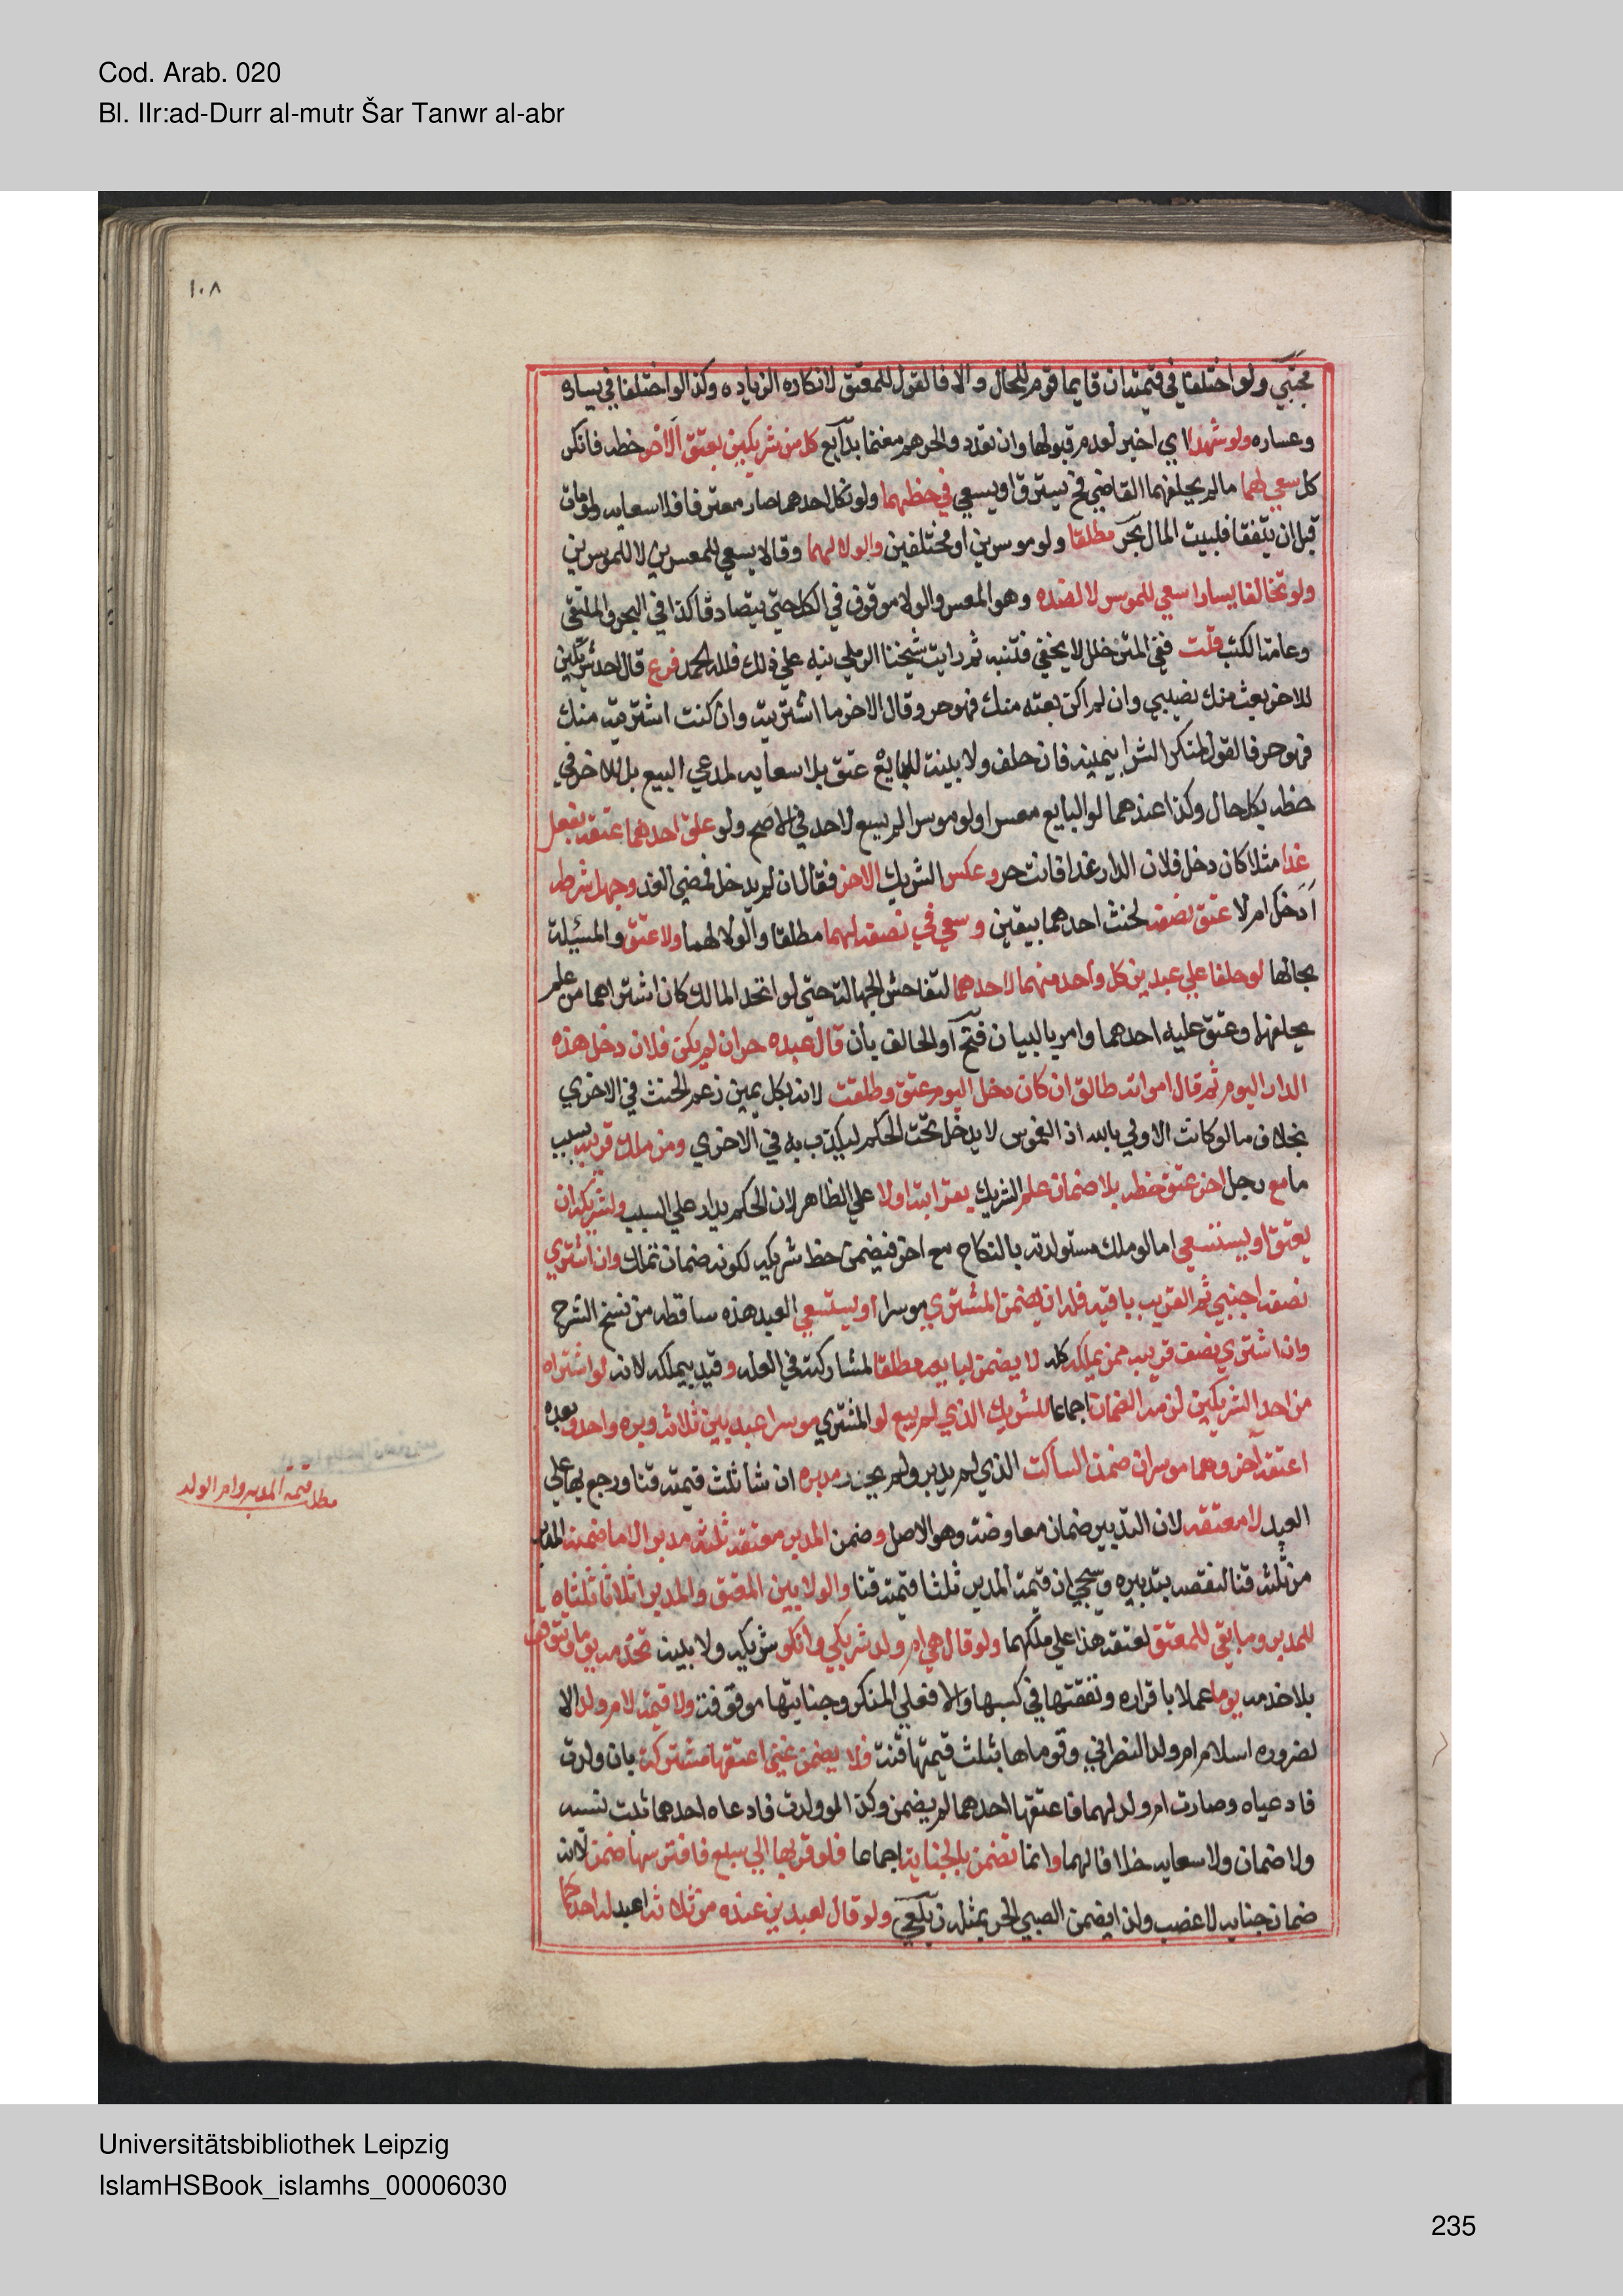 Cod. Arab. 020
Bl. IIr:ad-Durr al-mutr Šar Tanwr al-abr
١٠٨
مجتبي ولو اختلفا في قيمته ان قايما قوم للحال والا فالقول للمعتق لانكاره الزياده وكذا لو اختلفا في يساره
وعساره ولو شهدا اي اخبر لعدم قبولها وان تعدد والجرهم مغنما بدآيع كل من شريكين بعتق الاخر حظه فانكر
كل سعي لهما ما لم يحلفهما القاضي فح يسترق او يسعي في حظهما ولو نكل احدهما صار معترفا فلا سعايه ولو مات
قبل ان يتفقا فلبيت المال بحر مطلقا ولو موسرين او مختلفين والولا لهما وقالا يسعي للمعسرين لا للموسرين
ولو تخالفا يسارا سعي للموسر لا لضده وهو المعسر والولا موقوف في الكل حتي يتصادقا كذا في البحر والملتقي
وعامة الكتب قلت ففي المتن خلل لا يخفي فتنبه ثم رايت شيخنا الرملي نبه علي ذلك فلله الحمد فرع قال احد شريكين
للاخر بعت منك نصيبي وان لم اكن بعته منك فهو حر وقال الاخر ما اشتريته وان كنت اشتريته منك
فهو حر فالقول لمنكر الشرا بيمينه فان حلف ولا بينة للبايع عتق بلا سعايه لمدعي البيع بل للاخر في
حظه بكل حال وكذا عندهما لو البايع معسرا ولو موسرا لم يسع لاحد في الاصح ولو علق احدهما عتقه بفعل
غدا مثلا كان دخل فلان الدار غدا فانت حر وعكس الشريك الاخر فقال ان لم يدخل فمضي الغد وجهل شرطه
ادخل ام لا عتق نصفه لحنث احدهما بيقين وسعي في نصفه لهما مطلقا والولا لهما ولا عتق والمسئلة
بحالها لو حلفا علي عبدين كل واحد منهما لاحدهما لتفاحش الجهالة حتي لو اتحد المالك كان اشتراهما من علم
بحلفهما وعتق عليه احدهما وامر بالبيان فتح او الحالف بان قال عبده حر ان لم يكن فلان دخل هذه
الدار اليوم ثم قال امراته طالق ان كان دخل اليوم عتق وطلقت لانه بكل يمين زعم الحنث في الاخري
بخلاف ما لو كانت الاولي بالله اذ الغموس لا يدخل تحت الحكم ليكذب به في الاخري ومن ملك قريبه بسبب
ما مع رجل اخر عتق حظه بلا ضمان علم الشريك بقرابته اولا علي الظاهر لان الحكم يدار علي السبب ولشريكه ان
يعتق او يستسعي اما لو ملك مستولدته بالنكاح مع اخر فيضمن حظ شريكه لكونه ضمان تملك وان اشتري
نصفه اجنبي ثم القريب باقيه فله ان يضمن المشتري موسرا او يستسعي العبد هذه ساقطه من نسخ الشرح
وان اشتري نصف قريبه ممن يملكه كله لا يضمن لبايعه مطلقا لمشاركته في العله وقيد بيملكه لانه لو اشتراه
من احد الشريكين لزمه الضمان اجماعا للشريك الذي لم يبع لو المشتري موسرا عبد بين ثلاثه دبره واحد وبعده
اعتقه آخر وهما موسران ضمن الساكت الذي لم يدبر ولم يحرر مدبره ان شا ثلث قيمته قنا ورجع بها علي
العبد لا معتقه لان التدبير ضمان معاوضه وهو الاصل وضمن المدبر معتقه ثلثه مدبرا لا ما ضمنه المدبر
من ثلثه قنا لنقصه بتدبيره وسيجي ان قيمة المدبر ثلثا قيمته قنا والولا بين المعتق والمدبر اثلاثا ثلثاه
للمدبر وما بقي للمعتق لعتقه هذا علي ملكهما ولو قال هي ام ولد شريكي وانكر شريكه ولا بينة تخدمه يوما وتتوقف
بلا خدمه يوما عملا باقراره ونفقتها في كسبها والا فعلي المنكر وجنايتها موقوفة ولا قيمة لام ولد الا
لضروره اسلام ام ولد النصراني وقوماها بثلث قيمتها قنة فلا يضمن غني اعتقها مشتركة بان ولدت
فادعياه وصارت ام ولد لهما فاعتقها احدهما لم يضمن وكذا لو ولدت فادعاه احدهما ثبت نسبه
ولا ضمان ولا سعايه خلافا لهما وانما تضمن بالجناية اجماعا فلو قربها الي سبع فافترسها ضمن لانه
ضمان جنايه لا غصب ولذا يضمن الصبي الحر بمثله زيلعي ولو قال لعبدين عنده من ثلاثة اعبد له احدكما
مطلب قيمة المدبر وام الولد
Universitätsbibliothek Leipzig
IslamHSBook_islamhs_00006030
235